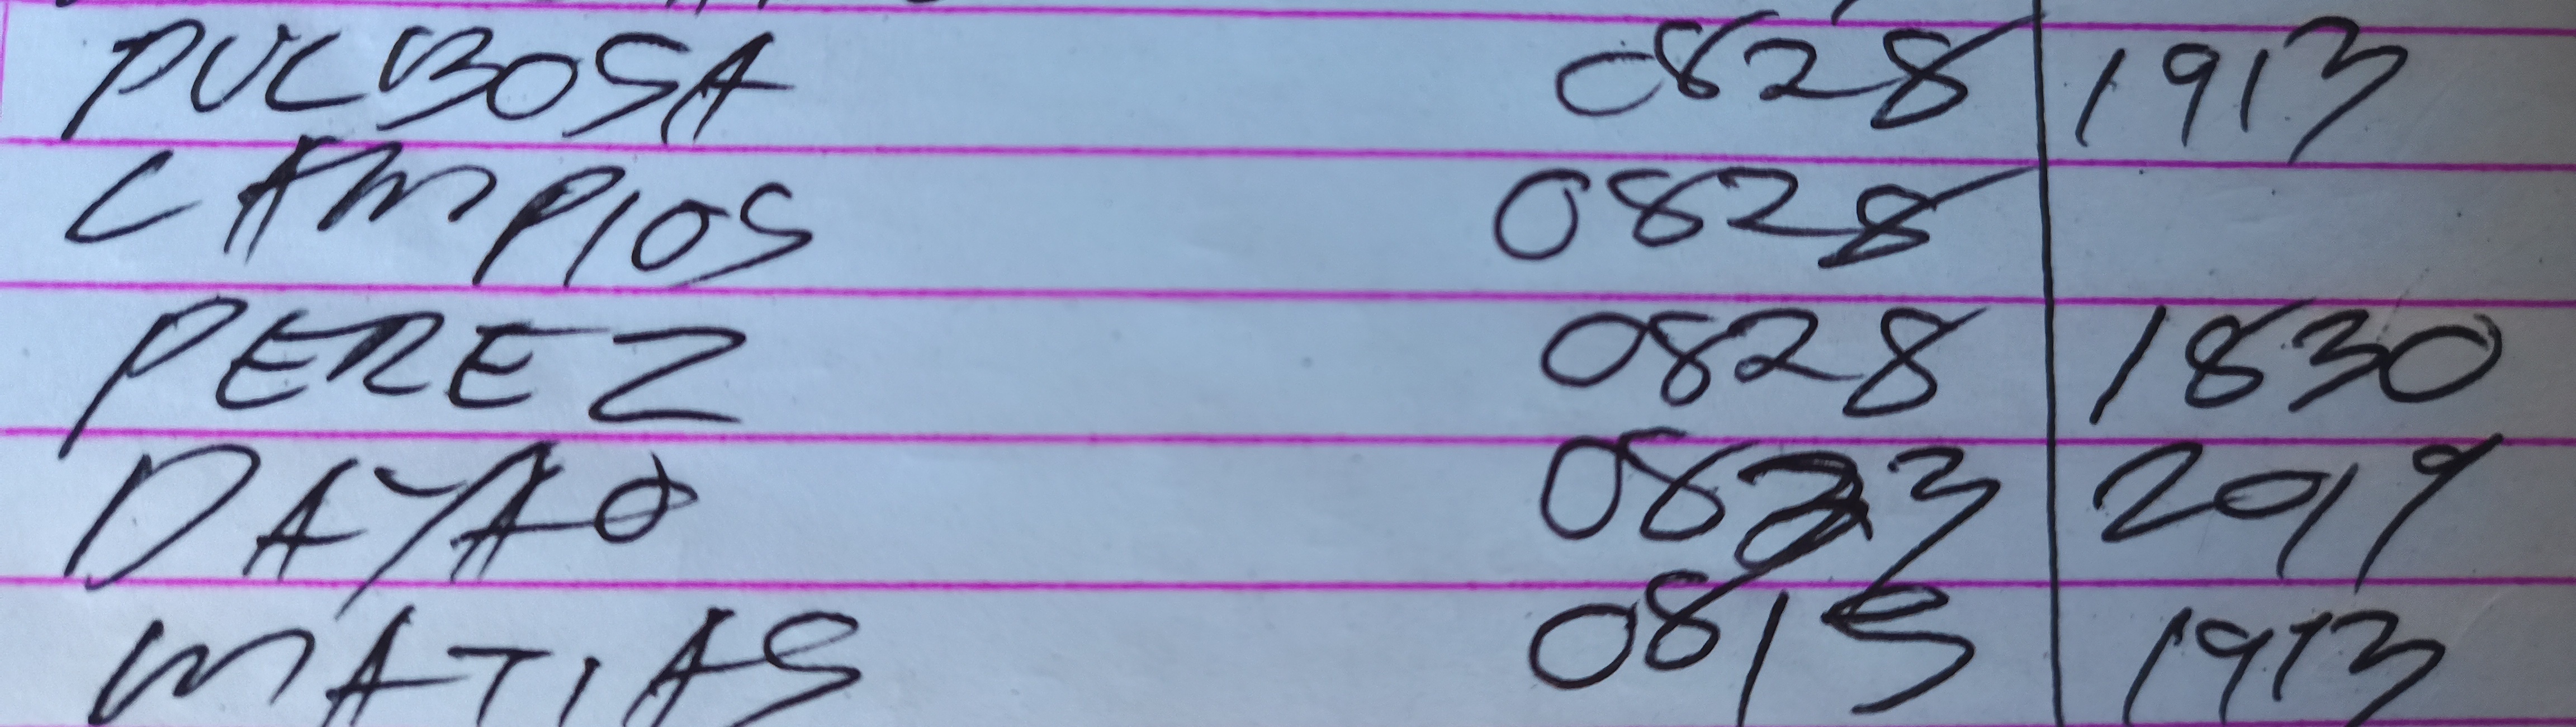 PULBOSA 0828 1913
CAMPIOS 0828
PEREZ 0828 1830
DAYAO 0823 2019
MATIAS 0815 1913